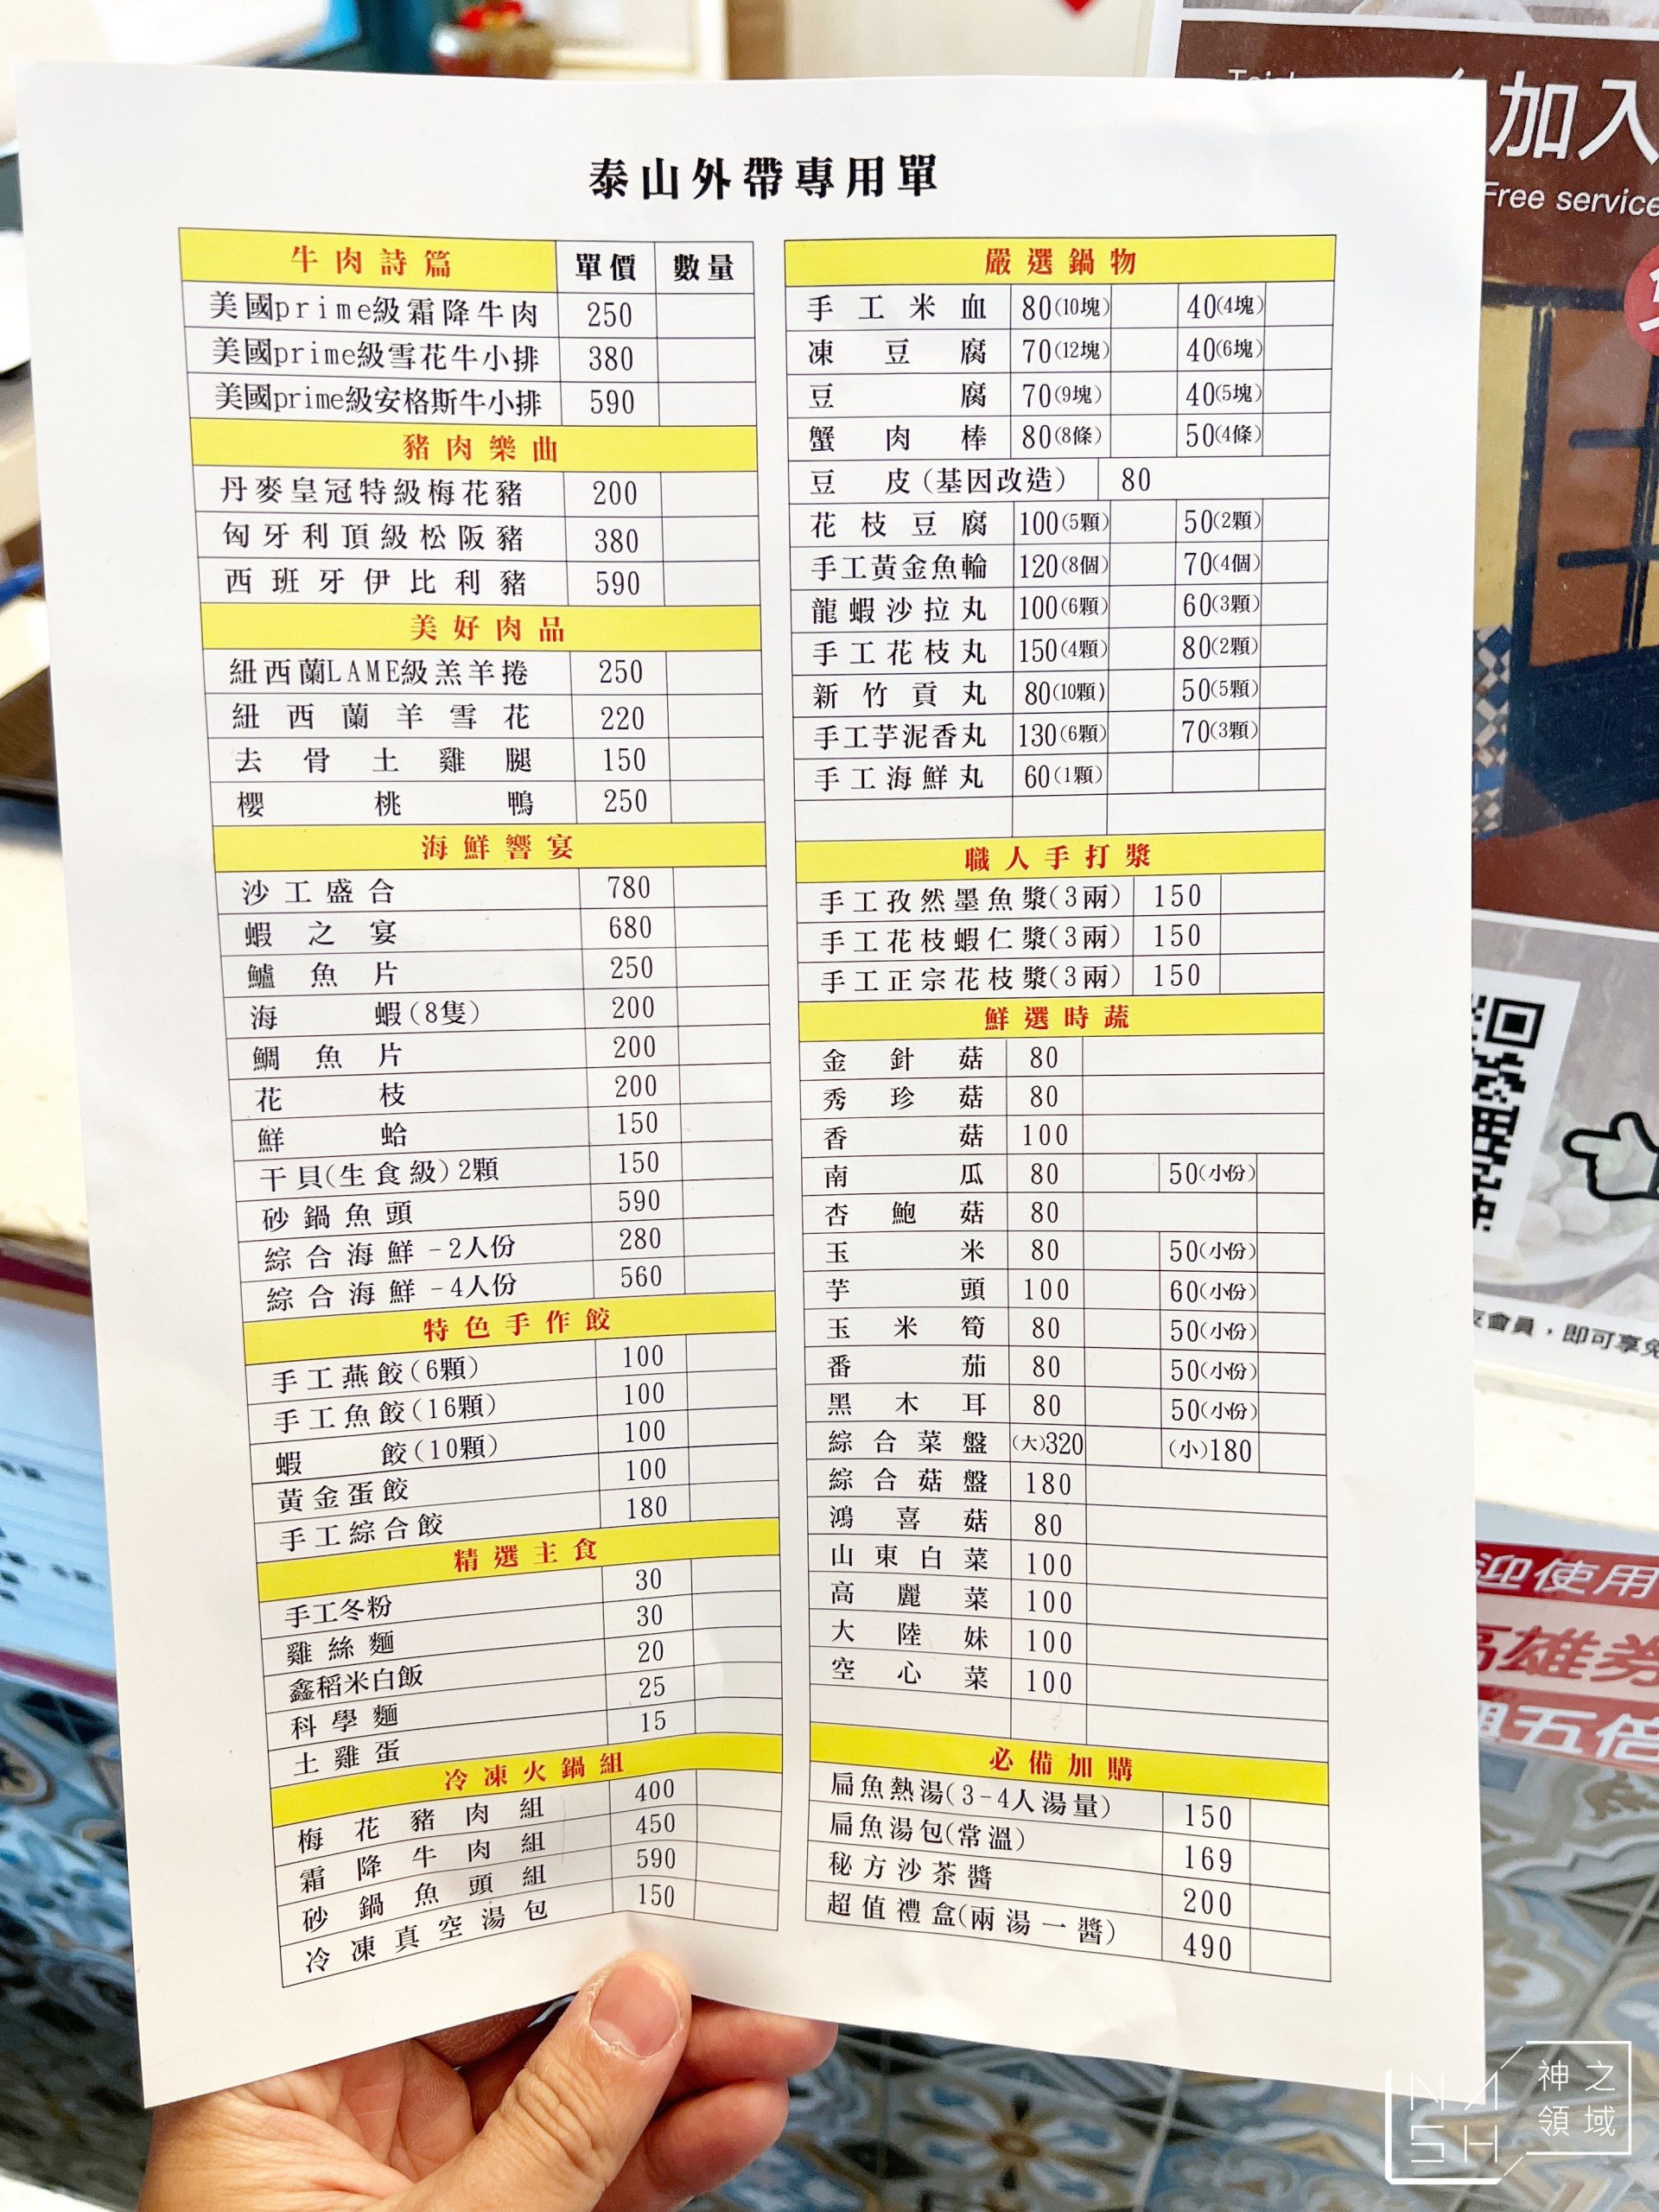 泰山外帶專用單
牛肉詩篇 單價 數量
美國prime級霜降牛肉 250
美國prime級雪花牛小排 380
美國prime級安格斯牛小排 590
豬肉樂曲
丹麥皇冠特級梅花豬 200
匈牙利頂級松阪豬 380
西班牙伊比利豬 590
美好肉品
紐西蘭LAME級羔羊捲 250
紐西蘭羊雪花 220
去骨土雞腿 150
櫻桃鴨 250
海鮮響宴
沙工盛合 780
蝦之宴 680
鱸魚片 250
海蝦(8隻) 200
鯛魚片 200
花枝 200
鮮蛤 150
干貝(生食級)2顆 150
砂鍋魚頭 590
綜合海鮮-2人份 280
綜合海鮮-4人份 560
特色手作餃
手工燕餃(6顆) 100
手工魚餃(16顆) 100
蝦餃(10顆) 100
黃金蛋餃 100
手工綜合餃 180
精選主食
手工冬粉 30
雞絲麵 30
鑫稻米白飯 20
科學麵 25
土雞蛋 15
冷凍火鍋組
梅花豬肉組 400
霜降牛肉組 450
砂鍋魚頭組 590
冷凍真空湯包 150
嚴選鍋物
手工米血 80(10塊) 40(4塊)
凍豆腐 70(12塊) 40(6塊)
豆腐 70(9塊) 40(5塊)
蟹肉棒 80(8條) 50(4條)
豆皮(基因改造) 80
花枝豆腐 100(5顆) 50(2顆)
手工黃金魚輪 120(8個) 70(4個)
龍蝦沙拉丸 100(6顆) 60(3顆)
手工花枝丸 150(4顆) 80(2顆)
新竹貢丸 80(10顆) 50(5顆)
手工芋泥香丸 130(6顆) 70(3顆)
手工海鮮丸 60(1顆)
職人手打漿
手工孜然墨魚漿(3兩) 150
手工花枝蝦仁漿(3兩) 150
手工正宗花枝漿(3兩) 150
鮮選時蔬
金針菇 80
秀珍菇 80
香菇 100
南瓜 80 50(小份)
杏鮑菇 80
玉米 80 50(小份)
芋頭 100 60(小份)
玉米筍 80 50(小份)
番茄 80 50(小份)
黑木耳 80 50(小份)
綜合菜盤 (大)320 (小)180
綜合菇盤 180
鴻喜菇 80
山東白菜 100
高麗菜 100
大陸妹 100
空心菜 100
必備加購
扁魚熱湯(3-4人湯量) 150
扁魚湯包(常溫) 169
秘方沙茶醬 200
超值禮盒(兩湯一醬) 490
加入
Free service
友會員，即可享免
迎使用
高雄券
五倍
NASH
神之
領域